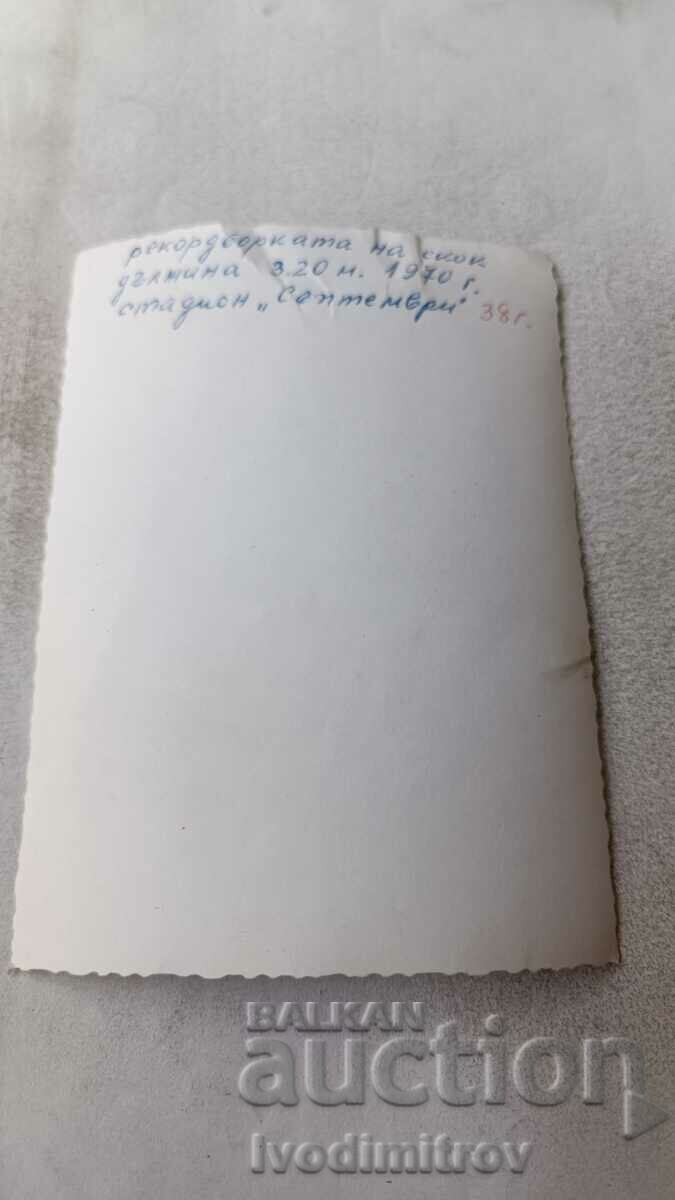 рекордборката на скок
дължина 3.20 м. 1970 г.
стадион „Септември" 38 г.
BALKAN
auction
Ivodimitrov